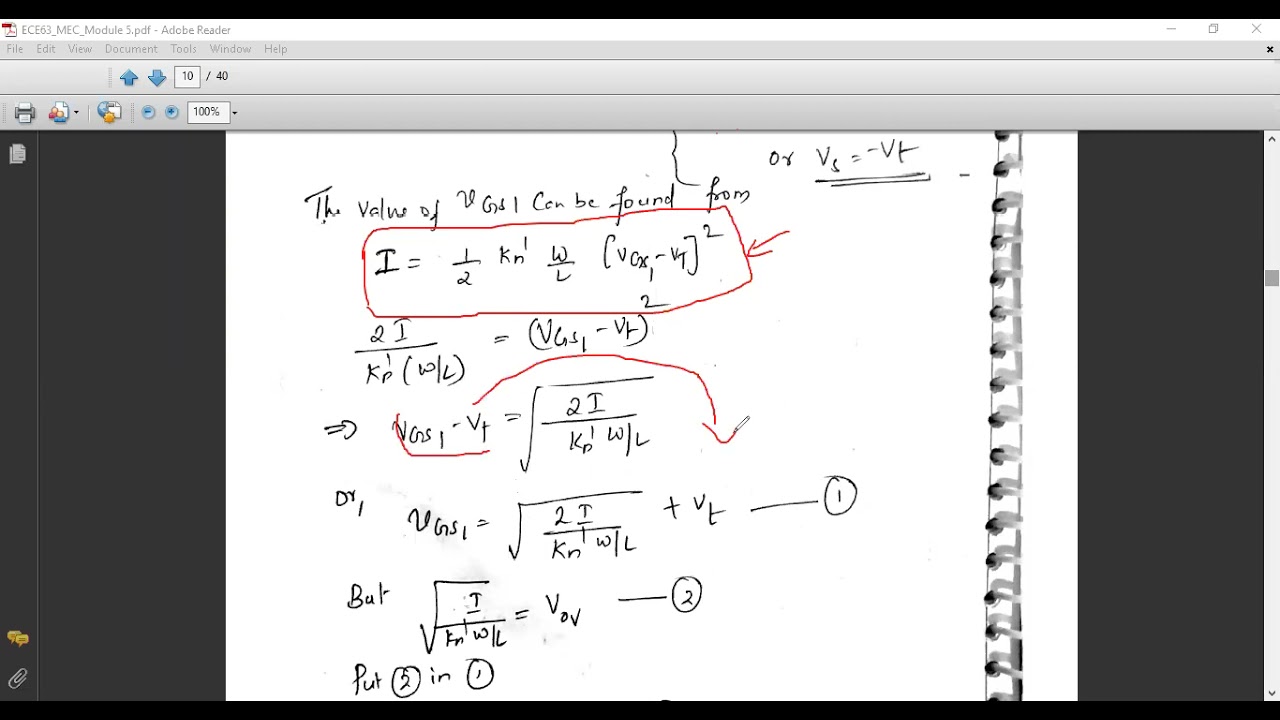 ECE63_MEC_Module 5.pdf - Adobe Reader
File Edit View Document Tools Window Help
10 / 40
100%
or Vs = -Vt
The value of VGS1 can be found from
I = 1/2 Kn' W/L [VGS1 - VT]^2
2I / Kn' (W/L) = (VGS1 - Vt)^2
⇒ VGS1 - Vt = √(2I / Kn' W/L)
Or, VGS1 = √(2I / Kn' W/L) + Vt —— ①
But √(I / Kn' W/L) = Vov —— ②
Put ② in ①